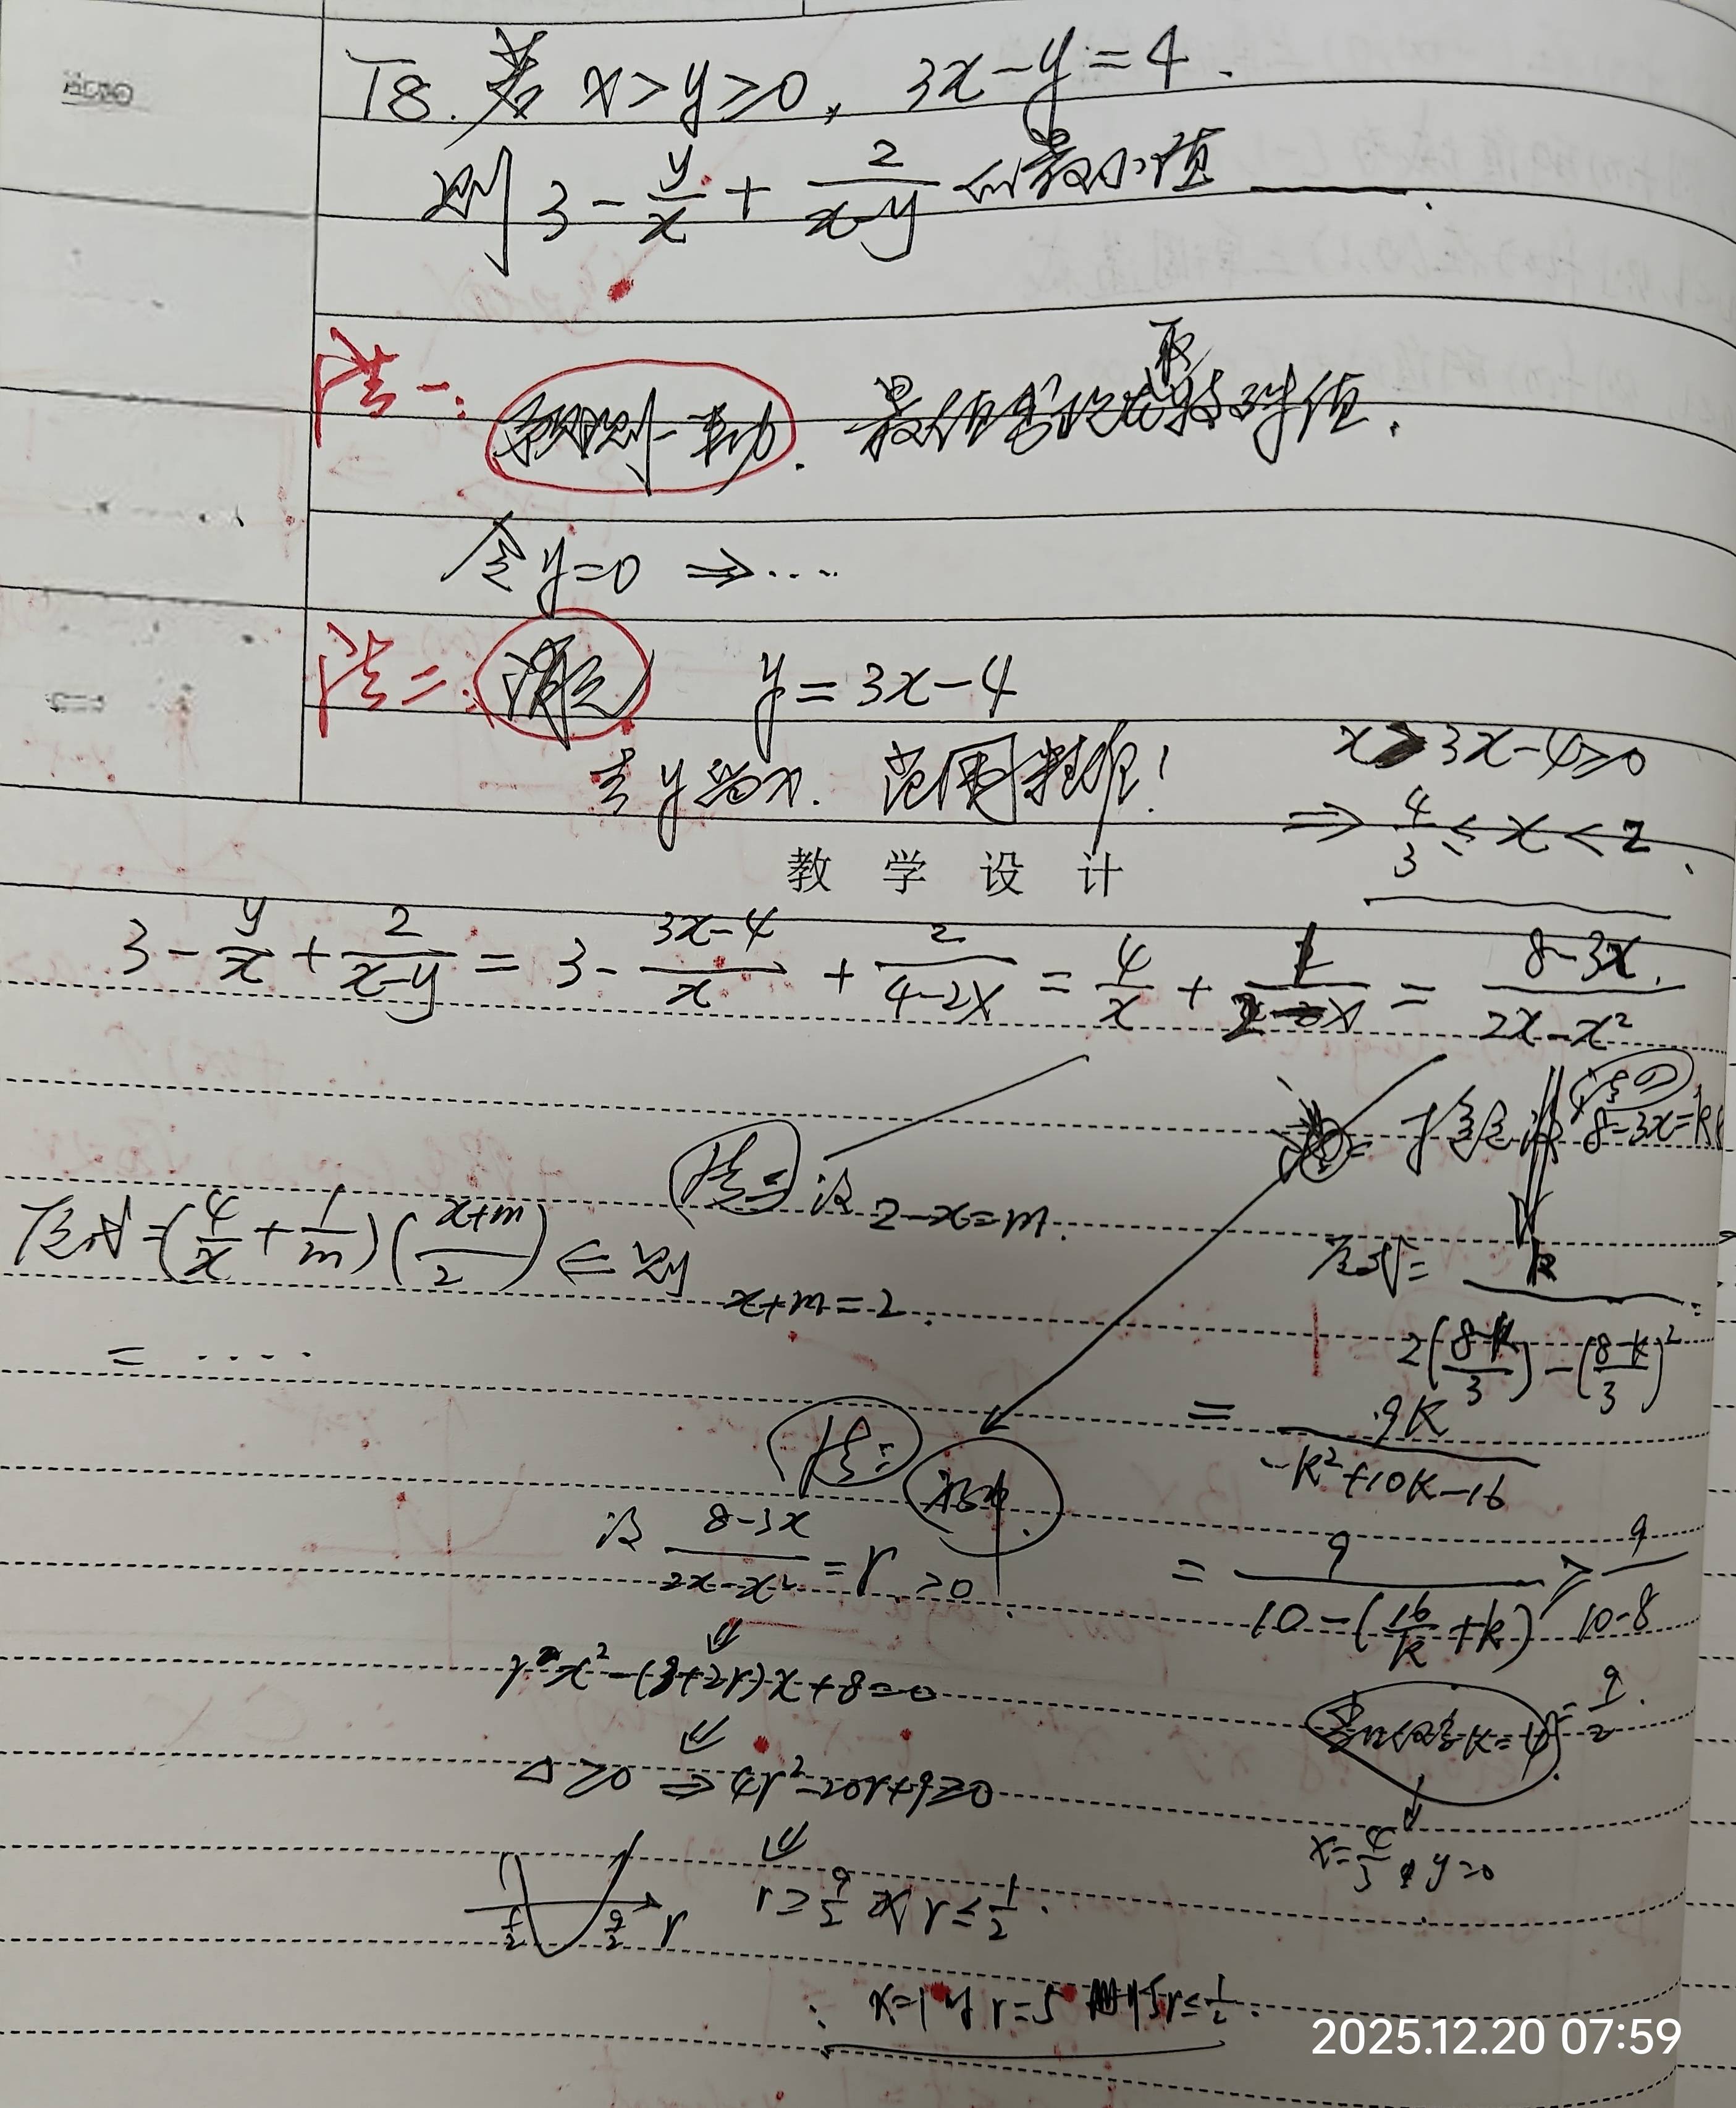 T8. 若 x>y≥0, 3x-y=4.
则 3-y/x+2/(x-y) 的最小值____.
法一:
最值常现于特殊值.
取
令y=0 ⇒ ....
法二: 消元 y=3x-4
去y留x. 范围精准!
x>3x-4≥0
⇒ 4/3≤x<2.
教 学 设 计
3-y/x+2/(x-y)=3-(3x-4)/x+2/(4-2x)=4/x+1/(2-x)=(8-3x)/(2x-x²)
法三 设 2-x=m.
则 x+m=2.
原式=(4/x+1/m)((x+m)/2) ⇐
= ....
法四
8-3x=k
原式=k/(2((8-k)/3)-((8-k)/3)²)
=9k/(-k²+10k-16)
=9/(10-(16/k+k))≥9/(10-8)
=9/2.
当且仅当k=4
x=4/3, y=0
法二
设 (8-3x)/(2x-x²)=r>0.
⇓
rx²-(3+2r)x+8=0
⇓
Δ≥0 ⇒ 4r²-20r+9≥0
⇓
r≥9/2 或 r≤1/2.
1/2 9/2 r
∴ x=1时r=5 r≤1/2.
2025.12.20 07:59